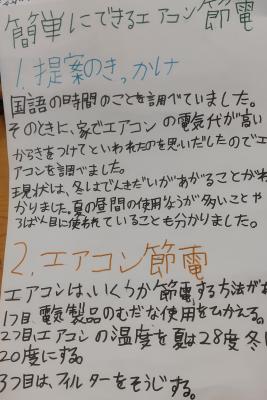 簡単にできるエアコン節電
1.提案のきっかけ
国語の時間のことを調べていました。
そのときに、家でエアコンの電気代が高い
から気をつけてといわれたのを思いだしたのでエ
アコンを調べました。
現状は、冬はでんきだいがあがることがわ
かりました。夏の昼間の使用りょうが多いことや
ろば人目に使われていることも分かりました。
2.エアコン節電
エアコンは、いくつか節電する方法が
1つ目電気製品のむだな使用をひかえる。
2つ目エアコンの温度を夏は28度冬
20度にする。
3つ目は、フィルターをそうじする。